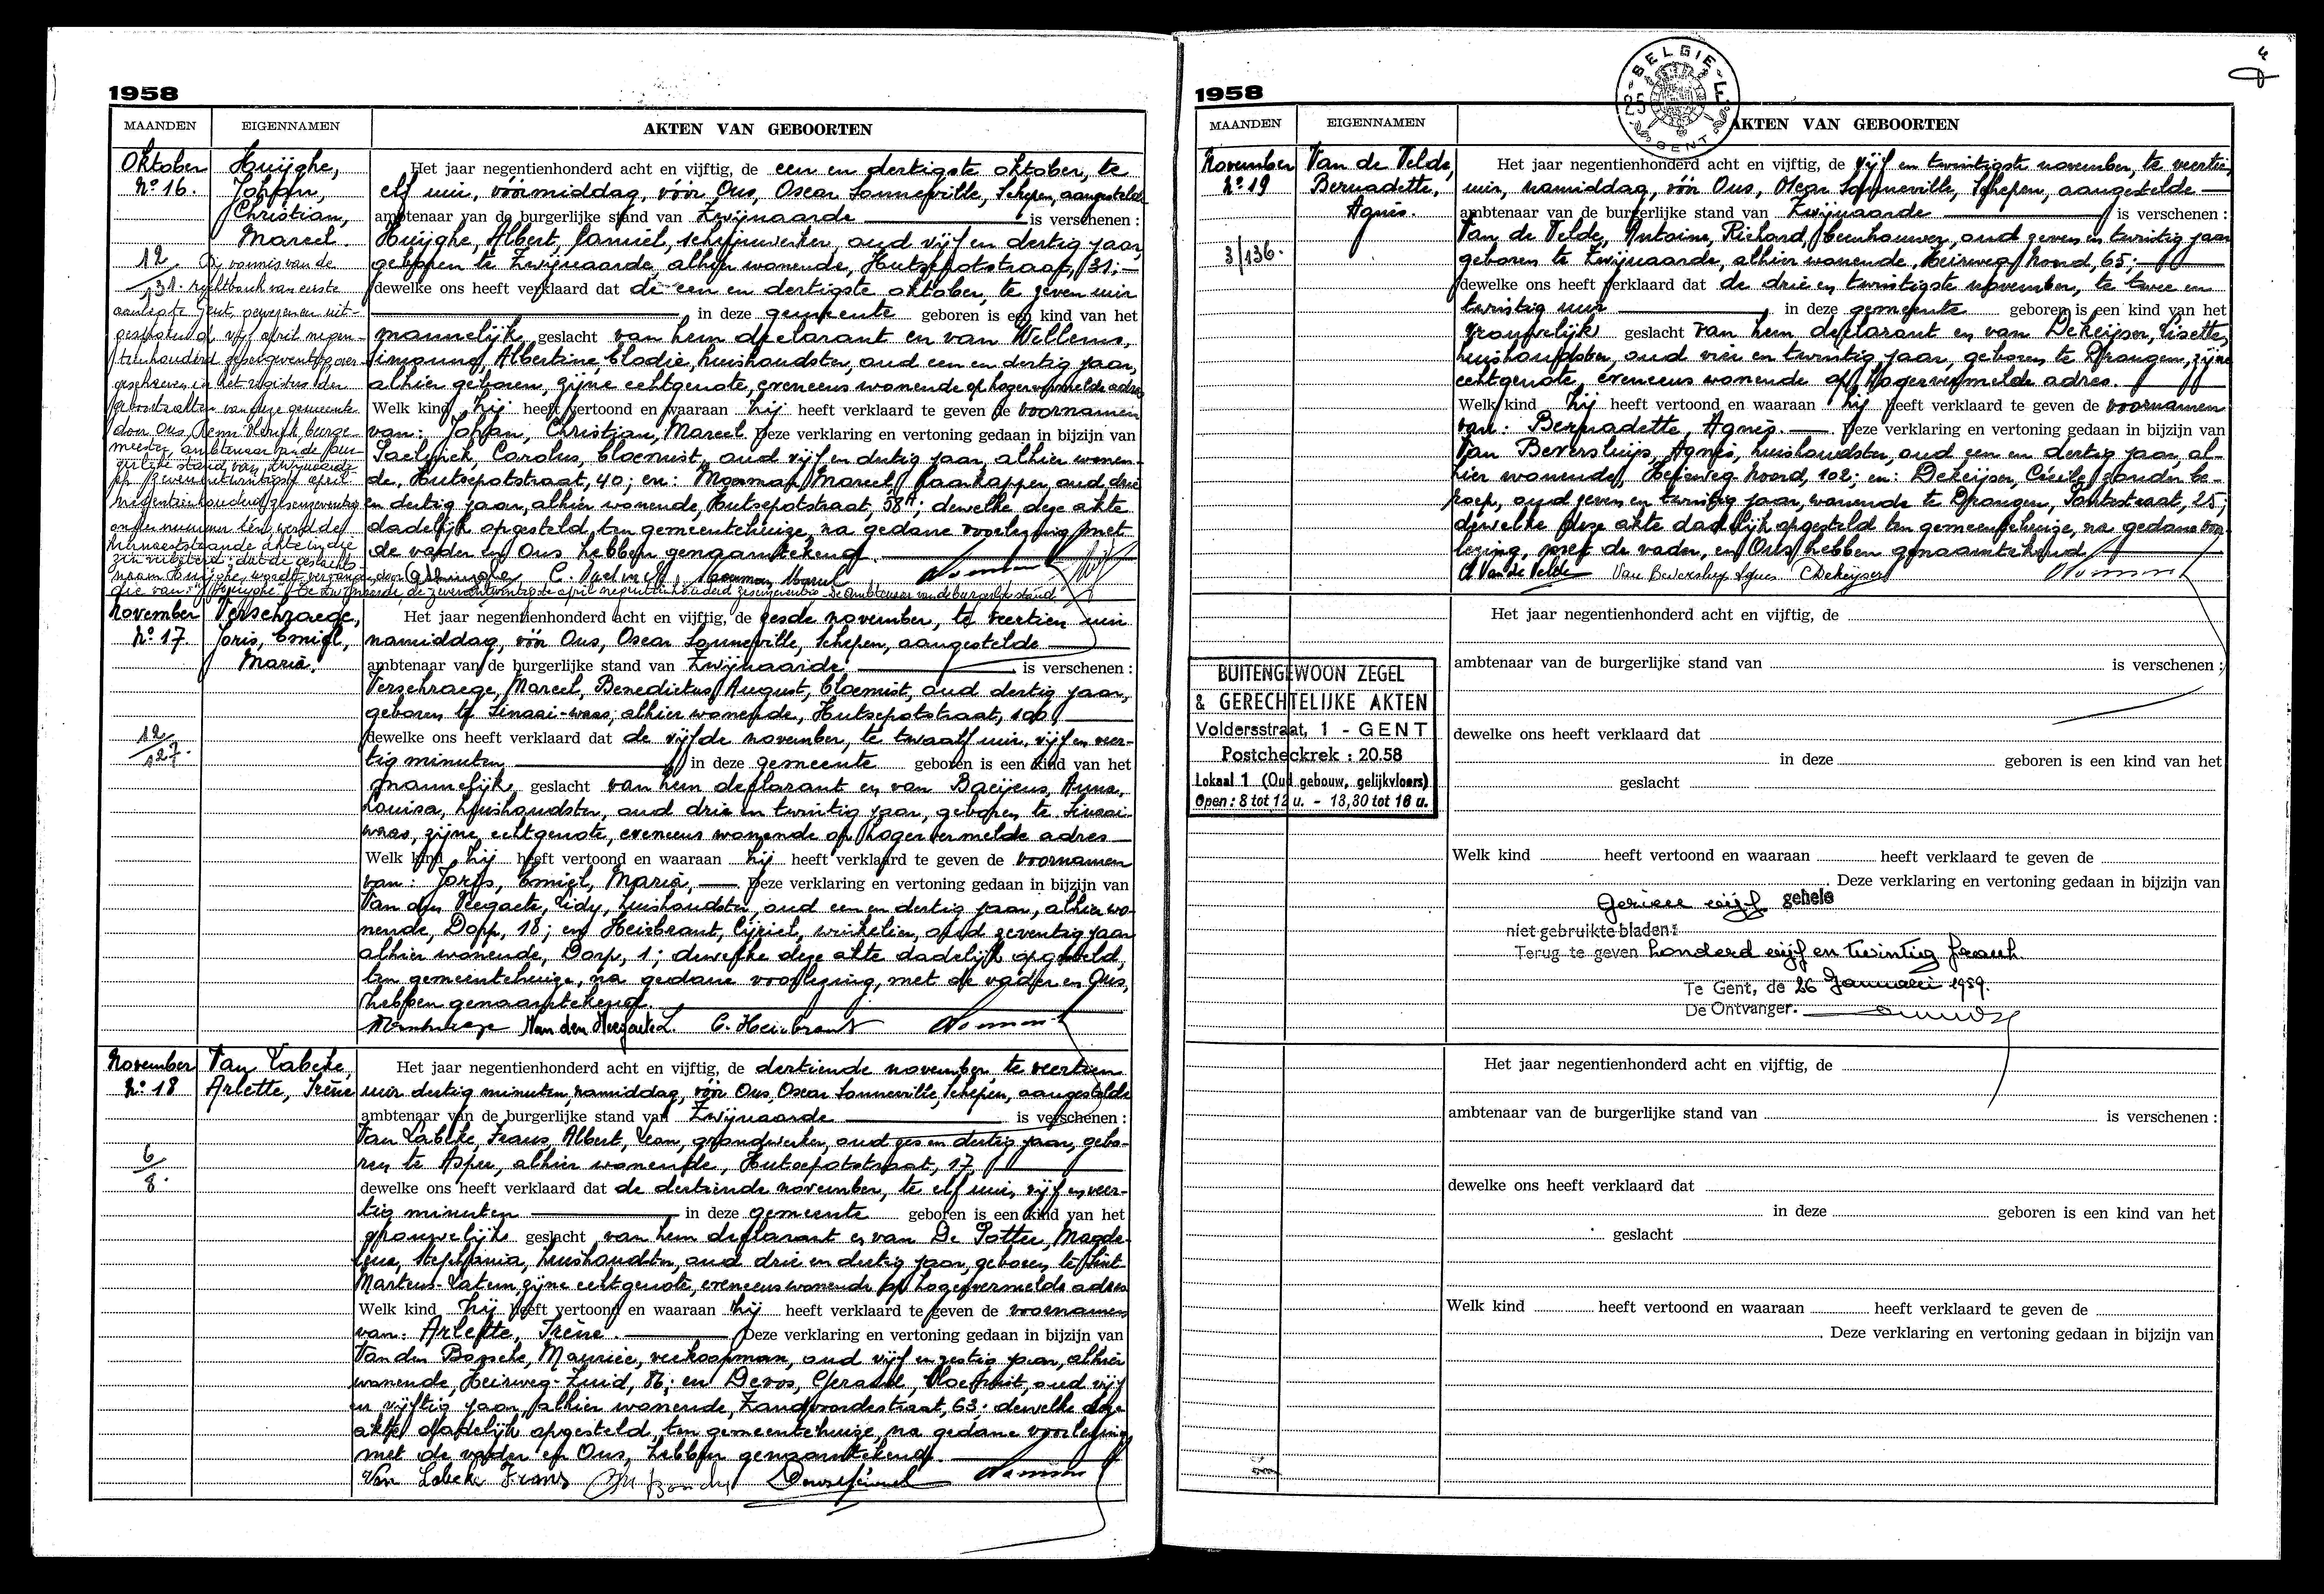 1958
MAANDEN EIGENNAMEN AKTEN VAN GEBOORTEN
Oktober
No 16.
Huijghe,
Johan,
Christian,
Marcel.
12
131.
Bij vonnis van de
rechtbank van eerste
aanleg te Gent, gewezen en uit-
gesproken de vijf april negen-
tienhonderd zesenzeventig over-
geschreven in het register der
geboorteakten van deze gemeente
door Ons, Remi Burge-
meester, ambtenaar van de bur-
gerlijke stand van Zwijnaarde
de zevenentwintigste april
negentienhonderd zesenzeventig
onder nummer tien, werd de
nevenstaande akte in die
zin verbeterd: dat de geslachts-
naam Huijghe wordt vervangen door
die van: "Huyghe". Zwijnaarde, de zevenentwintigste april negentienhonderd zesenzeventig. De Ambtenaar van de burgerlijke stand
Het jaar negentienhonderd acht en vijftig, de een en dertigste oktober, te
elf uur, vóórmiddag, vóór Ons, Oscar Sonneville, Schepen, aangestelde
ambtenaar van de burgerlijke stand van Zwijnaarde is verschenen :
Huijghe, Albert, Camiel, schrijnwerker, oud vijf en dertig jaar,
geboren te Zwijnaarde, alhier wonende, Hutsepotstraat, 31;
dewelke ons heeft verklaard dat de een en dertigste oktober, te zeven uur
in deze gemeente geboren is een kind van het
mannelijk geslacht van hem declarant en van Willems,
Simonne, Albertine, Elodie, huishoudster, oud een en dertig jaar,
alhier geboren, zijne echtgenote, eveneens wonende op hogervermelde adres
Welk kind hij heeft vertoond en waaraan hij heeft verklaard te geven de voornamen
van: Johan, Christian, Marcel. Deze verklaring en vertoning gedaan in bijzijn van
Paelinck, Carolus, bloemist, oud vijf en dertig jaar, alhier wonen-
de, Hutsepotstraat, 40; en: Moerman, Marcel, haarkapper, oud drie
en dertig jaar, alhier wonende, Hutsepotstraat, 58A; dewelke deze akte
dadelijk opgesteld, ten gemeentehuize, na gedane voorlezing, met
de vader en Ons hebben genaamtekend.
C. Paelinck, Moerman Marcel
November
No 17.
Verschraege,
Joris, Emiel,
Maria.
12
127.
Het jaar negentienhonderd acht en vijftig, de zesde november, te veertien uur
namiddag, vóór Ons, Oscar Sonneville, Schepen, aangestelde
ambtenaar van de burgerlijke stand van Zwijnaarde is verschenen :
Verschraege, Marcel, Benedictus, August, bloemist, oud dertig jaar,
geboren te Sinaai-waas, alhier wonende, Hutsepotstraat, 100,
dewelke ons heeft verklaard dat de vijfde november, te twaalf uur, vijf en veer-
tig minuten in deze gemeente geboren is een kind van het
mannelijk geslacht van hem declarant en van Baeyens, Anna,
Louisa, huishoudster, oud drie en twintig jaar, geboren te Sinaai-
waas, zijne echtgenote, eveneens wonende op hoger vermelde adres
Welk kind hij heeft vertoond en waaraan hij heeft verklaard te geven de voornamen
van: Joris, Emiel, Maria, Deze verklaring en vertoning gedaan in bijzijn van
Van den Neegaete, Lidy, huishoudster, oud een en dertig jaar, alhier wo-
nende, Dorp, 18; en Heirbrant, Cijriel, winkelier, oud zeventig jaar
alhier wonende, Dorp, 1; dewelke deze akte dadelijk opgesteld,
ten gemeentehuize, na gedane voorlezing, met de vader en Ons,
hebben genaamtekend.
C. Heirbrant
November
No 18
Van Labeke,
Arlette, Irène
6
8.
Het jaar negentienhonderd acht en vijftig, de dertiende november te veertien
uur dertig minuten, namiddag, vóór Ons, Oscar Sonneville, Schepen, aangestelde
ambtenaar van de burgerlijke stand van Zwijnaarde is verschenen :
Van Labeke, Frans, Albert, Leon, grondwerker, oud zes en dertig jaar, gebo-
ren te Asper, alhier wonende, Hutsepotstraat, 17
dewelke ons heeft verklaard dat de dertiende november, te elf uur, vijf en veer-
tig minuten in deze gemeente geboren is een kind van het
vrouwelijk geslacht van hem declarant en van De Potter, Magda-
lena, Stephania, huishoudster, oud drie en dertig jaar, geboren te Sint-
Martens-Latem, zijne echtgenote, eveneens wonende op hogervermelde adres
Welk kind hij heeft vertoond en waaraan hij heeft verklaard te geven de voornamen
van: Arlette, Irène. Deze verklaring en vertoning gedaan in bijzijn van
Van den Bossche, Maurice, veekoopman, oud vijf en zestig jaar, alhier
wonende, Heirweg-Zuid, 86; en Devos, Gerard, bloemist, oud vijf
en vijftig jaar, alhier wonende, Zandvoordestraat, 63; dewelke deze
akte dadelijk opgesteld, ten gemeentehuize, na gedane voorlezing
met de vader en Ons, hebben genaamtekend.
Van Labeke Frans
BELGIE-
25 F
GENT
4
1958
MAANDEN EIGENNAMEN AKTEN VAN GEBOORTEN
November
No 19
Van de Velde,
Bernadette,
Agnès.
3/136.
Het jaar negentienhonderd acht en vijftig, de vijf en twintigste november, te veertien
uur, namiddag, vóór Ons, Oscar Sonneville, Schepen, aangestelde
ambtenaar van de burgerlijke stand van Zwijnaarde is verschenen :
Van de Velde, Antoine, Richard, beenhouwer, oud zeven en twintig jaar
geboren te Zwijnaarde, alhier wonende, Heirweg Noord, 65;
dewelke ons heeft verklaard dat de drie en twintigste november, te twee en
twintig uur in deze gemeente geboren is een kind van het
vrouwelijk geslacht van hem declarant en van Dekeijser, Lisette,
huishoudster, oud vier en twintig jaar, geboren te Drongen, zijne
echtgenote, eveneens wonende op hogervermelde adres.
Welk kind hij heeft vertoond en waaraan hij heeft verklaard te geven de voornamen
van: Bernadette, Agnès. Deze verklaring en vertoning gedaan in bijzijn van
Van Beversluijs, Agnès, huishoudster, oud een en dertig jaar, al-
hier wonende, Heirweg Noord, 102; en: Dekeijser, Cécile, zonder be-
roep, oud zeven en twintig jaar, wonende te Drongen, Pontstraat, 25;
dewelke deze akte dadelijk opgesteld ten gemeentehuize, na gedane voor-
lezing, met de vader, en Ons hebben genaamtekend
A Van de Velde Van Beversluys Agnes C Dekeijser
Het jaar negentienhonderd acht en vijftig, de
ambtenaar van de burgerlijke stand van is verschenen :
BUITENGEWOON ZEGEL
& GERECHTELIJKE AKTEN
Voldersstraat, 1 - GENT
Postcheckrek : 20.58
Lokaal 1 (Oud gebouw, gelijkvloers)
Open : 8 tot 12 u. - 13,30 tot 16 u.
dewelke ons heeft verklaard dat
in deze geboren is een kind van het
geslacht
Welk kind heeft vertoond en waaraan heeft verklaard te geven de
Deze verklaring en vertoning gedaan in bijzijn van
vijf gehele
niet gebruikte bladen:
Terug te geven honderd vijf en twintig frank.
Te Gent, de 26 Januari 1959.
De Ontvanger.
Het jaar negentienhonderd acht en vijftig, de
ambtenaar van de burgerlijke stand van is verschenen :
dewelke ons heeft verklaard dat
in deze geboren is een kind van het
geslacht
Welk kind heeft vertoond en waaraan heeft verklaard te geven de
Deze verklaring en vertoning gedaan in bijzijn van